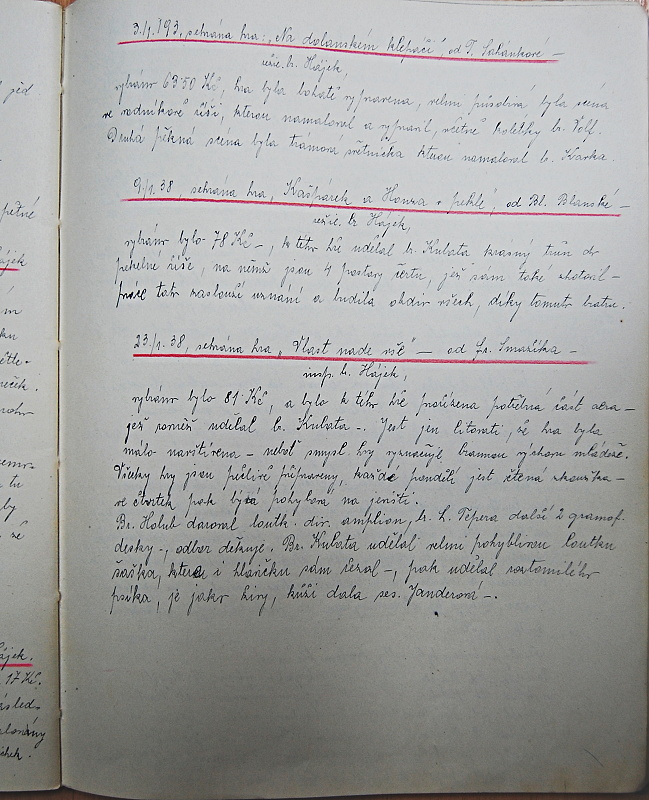 3./1. 793, sehrána hra: „Na dolanském klepáči", od F. Sahánkové –
režie br. Hájek,
vybráno 63·50 Kč, hra byla bohatě vypravena, velmi působivá byla scéna
ve vodníkově říši, kterou namaloval a vypravil, včetně kolébky br. Volf.
Druhá pěkná scéna byla trámová světnička kterou namaloval br. Kavka.
9./1. 38, sehrána hra, Kašpárek a Honza v pekle", od Bl. Blanské –
režie br Hájek,
vybráno bylo 78 Kč –, k této hře udělal br. Kubata krásný trůn do
pekelné říše, na němž jsou 4 postavy čertů, jež sám také zhotovil –
práce tato zaslouží uznání a budila obdiv všech, díky tomuto bratru.
23./1. 38, sehrána hra „Vlast nade vše" – od Fr. Smažíka –
insp. br. Hájek,
vybráno bylo 81·Kč, a byla k této hře pořízena potřebná část
jež poměr udělal br. Kubata –. Jest jen litovati, že hra byla
málo navštívena – neboť smysl hry vyznačuje brannou výchovu mládeže.
Všecky hry jsou pečlivě připraveny, každé pondělí jest čtená zkouška –
ve čtvrtek pak bývá pohybová na jevišti.
Br. Holub daroval loutk. div. amplion, br. L. Tépera další 2 gramof.
desky –, odbor děkuje. Br. Kubata udělal velmi pohyblivou loutku
šaška, kterou i hlavičku sám řezal –, pak udělal roztomilého
psíka, je jako živý, kůži dala ses. Janderová –.
jed
pětné
Hájek
m
ku
větle-
reček.
tu
by
že
Hájek.
17 Kč.
násled-